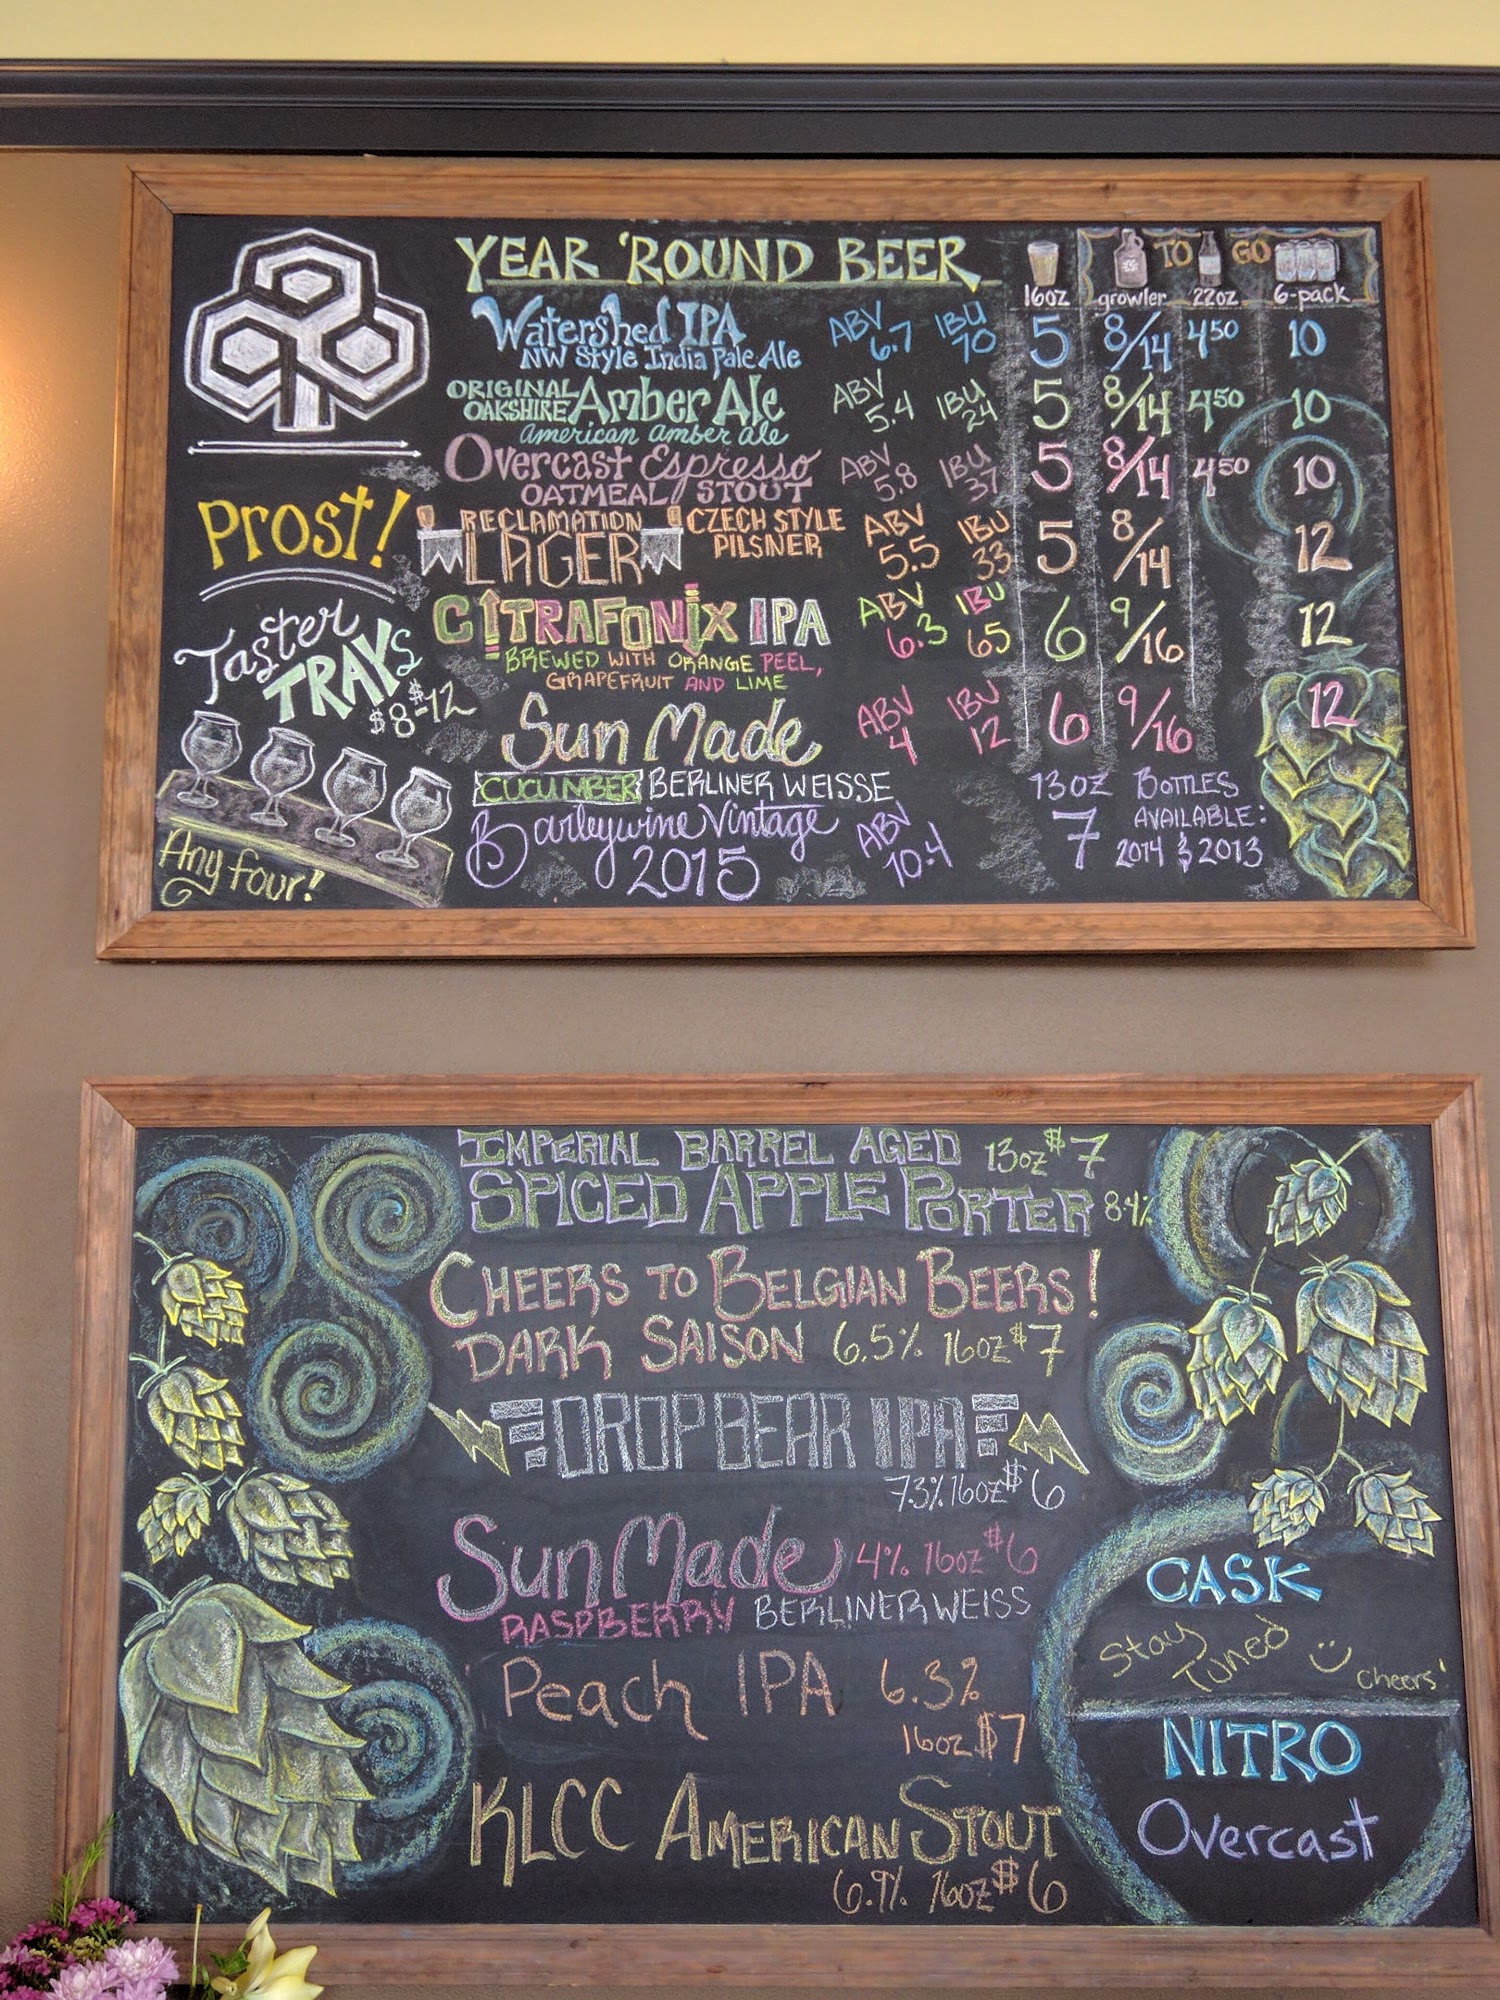 YEAR 'ROUND BEER
TO GO
16oz growler 22oz 6-pack
Watershed IPA ABV 6.7 IBU 70 5 8/14 4 50 10
NW Style India Pale Ale
ORIGINAL OAKSHIRE Amber Ale ABV 5.4 IBU 24 5 8/14 4 50 10
American amber ale
Overcast Espresso ABV 5.8 IBU 37 5 8/14 4 50 10
OATMEAL STOUT
RECLAMATION LAGER CZECH STYLE PILSNER ABV 5.5 IBU 33 5 8/14 12
CITRAFONIX IPA ABV 6.3 IBU 65 6 9/16 12
BREWED WITH ORANGE PEEL,
GRAPEFRUIT AND LIME
Sun Made ABV 4 IBU 12 6 9/16 12
CUCUMBER BERLINER WEISSE
Barleywine Vintage 2015 ABV 10.4 13oz 7
BOTTLES
AVAILABLE:
2014 & 2013
Prost!
Taster
TRAYS
$8-$12
Any four!
IMPERIAL BARREL AGED 13oz $7
SPICED APPLE PORTER 8.4%
CHEERS TO BELGIAN BEERS!
DARK SAISON 6.5% 16oz $7
DROP BEAR IPA
7.3% 16oz $6
Sun Made 4% 16oz $6
RASPBERRY BERLINER WEISS
Peach IPA 6.3%
16oz $7
KLCC AMERICAN STOUT
6.9% 16oz $6
CASK
Stay Tuned
cheers!
NITRO
Overcast